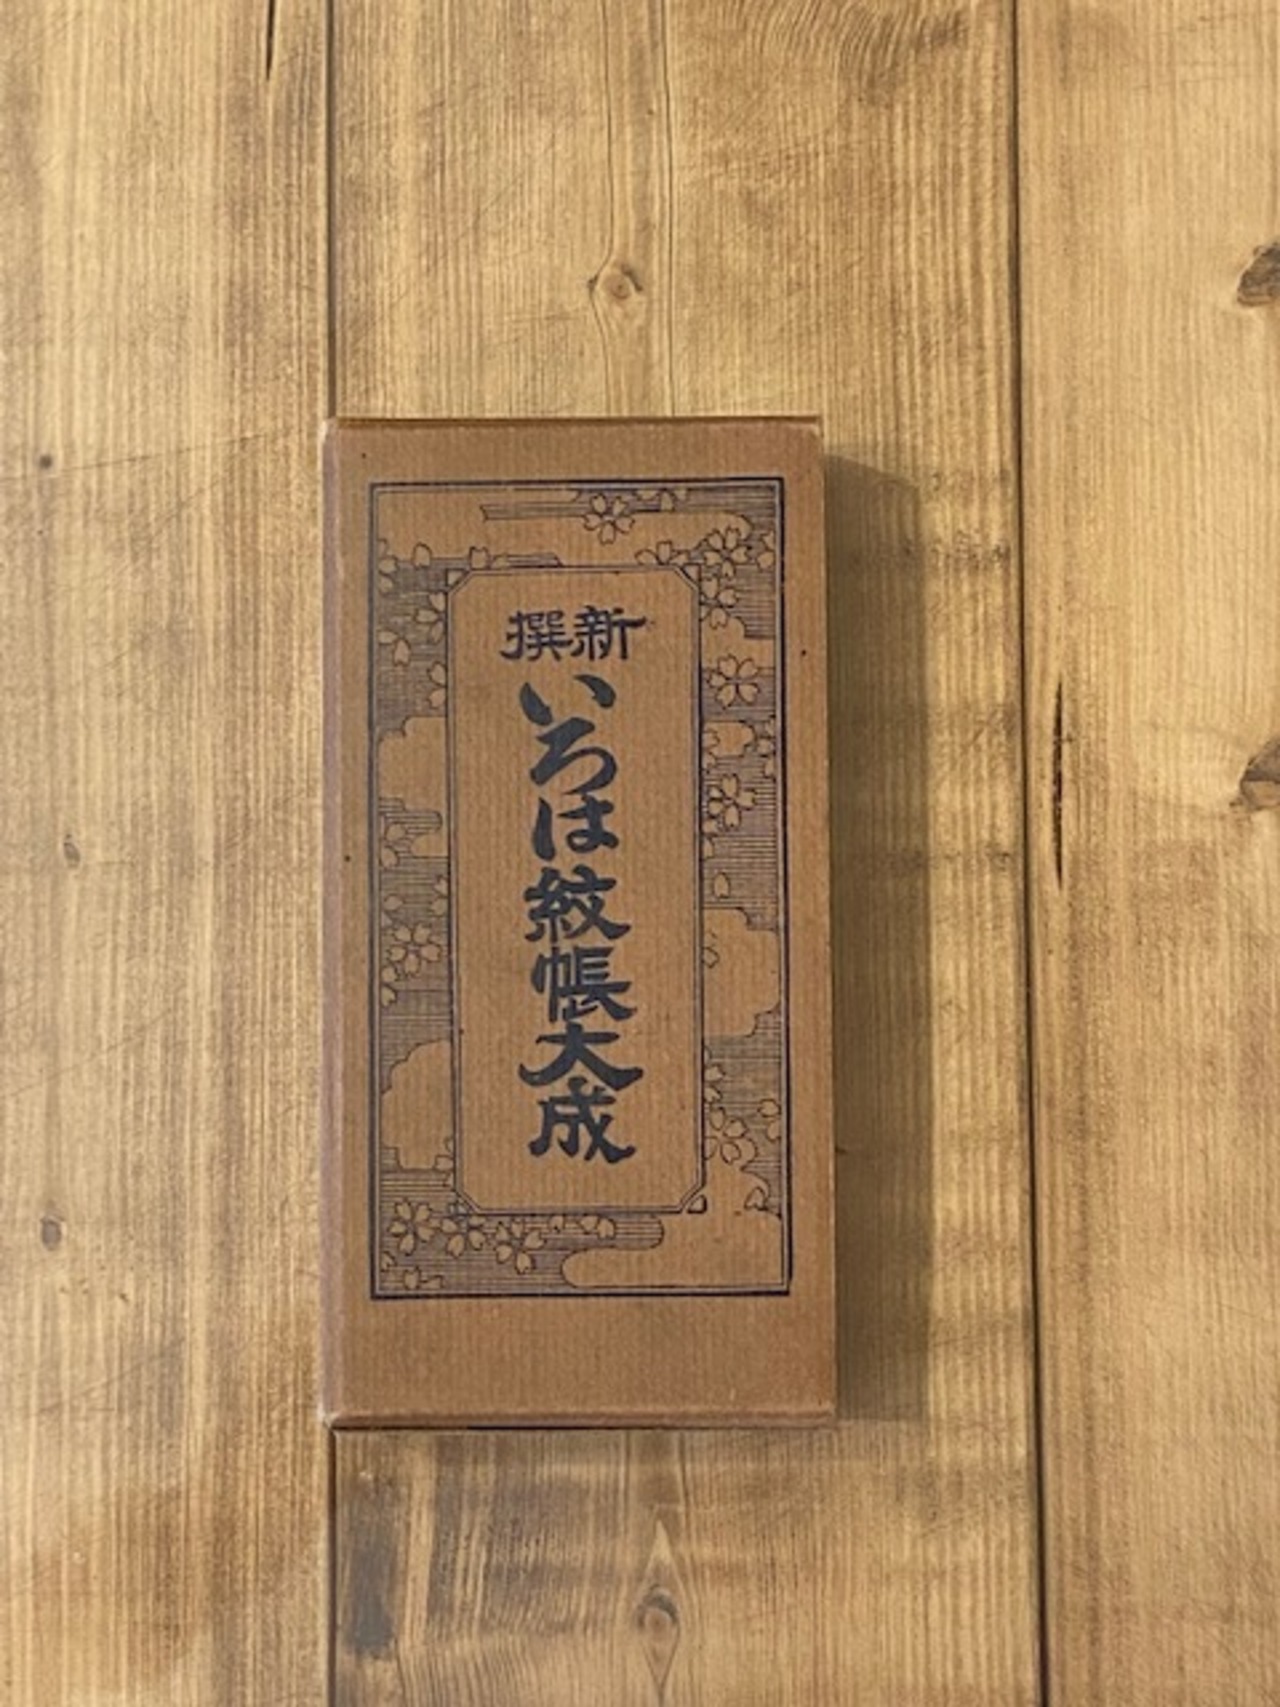 新撰
いろは紋帳大成